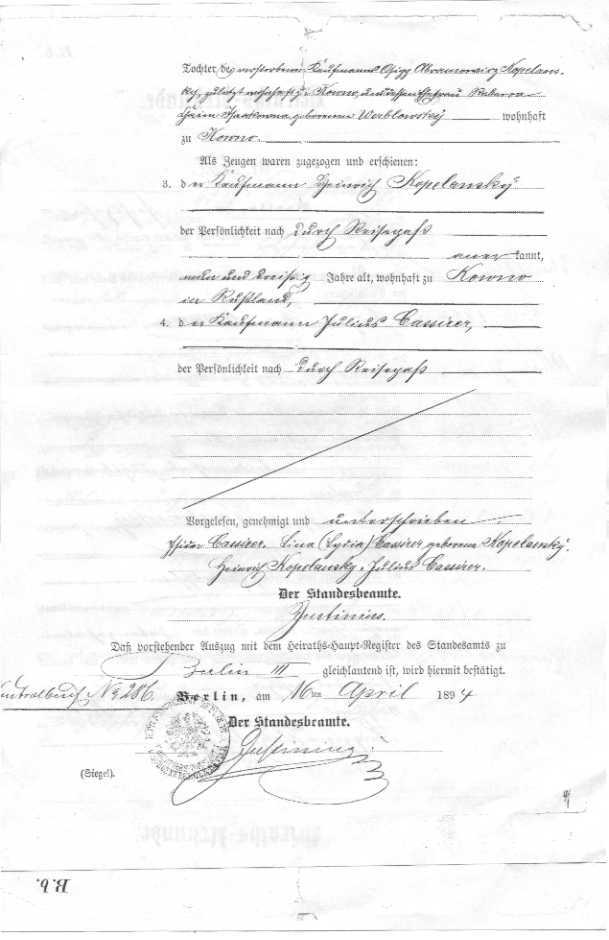 Tochter des verstorbenen Kaufmanns Abramowicz Kopelans-
ky, zuletzt wohnhaft zu Kowno, und dessen Ehefrau
geborenen Werblowsky wohnhaft
zu Kowno.
Als Zeugen waren zugezogen und erschienen:
3. der Kaufmann Heinrich Kopelansky
der Persönlichkeit nach durch Reisepaß
anerkannt,
und dreißig Jahre alt, wohnhaft zu Kowno
in Rußland,
4. der Kaufmann Julius Cassirer,
der Persönlichkeit nach durch Reisepaß
Vorgelesen, genehmigt und unterschrieben
Cassirer. Lina (Lydia) Cassirer geborene Kopelansky.
Heinrich Kopelansky. Julius Cassirer.
Der Standesbeamte.
Daß vorstehender Auszug mit dem Heiraths-Haupt-Register des Standesamts zu
Berlin III gleichlautend ist, wird hiermit bestätigt.
No 286. Berlin, am 16ten April 1894
Der Standesbeamte.
(Siegel).
B.b.